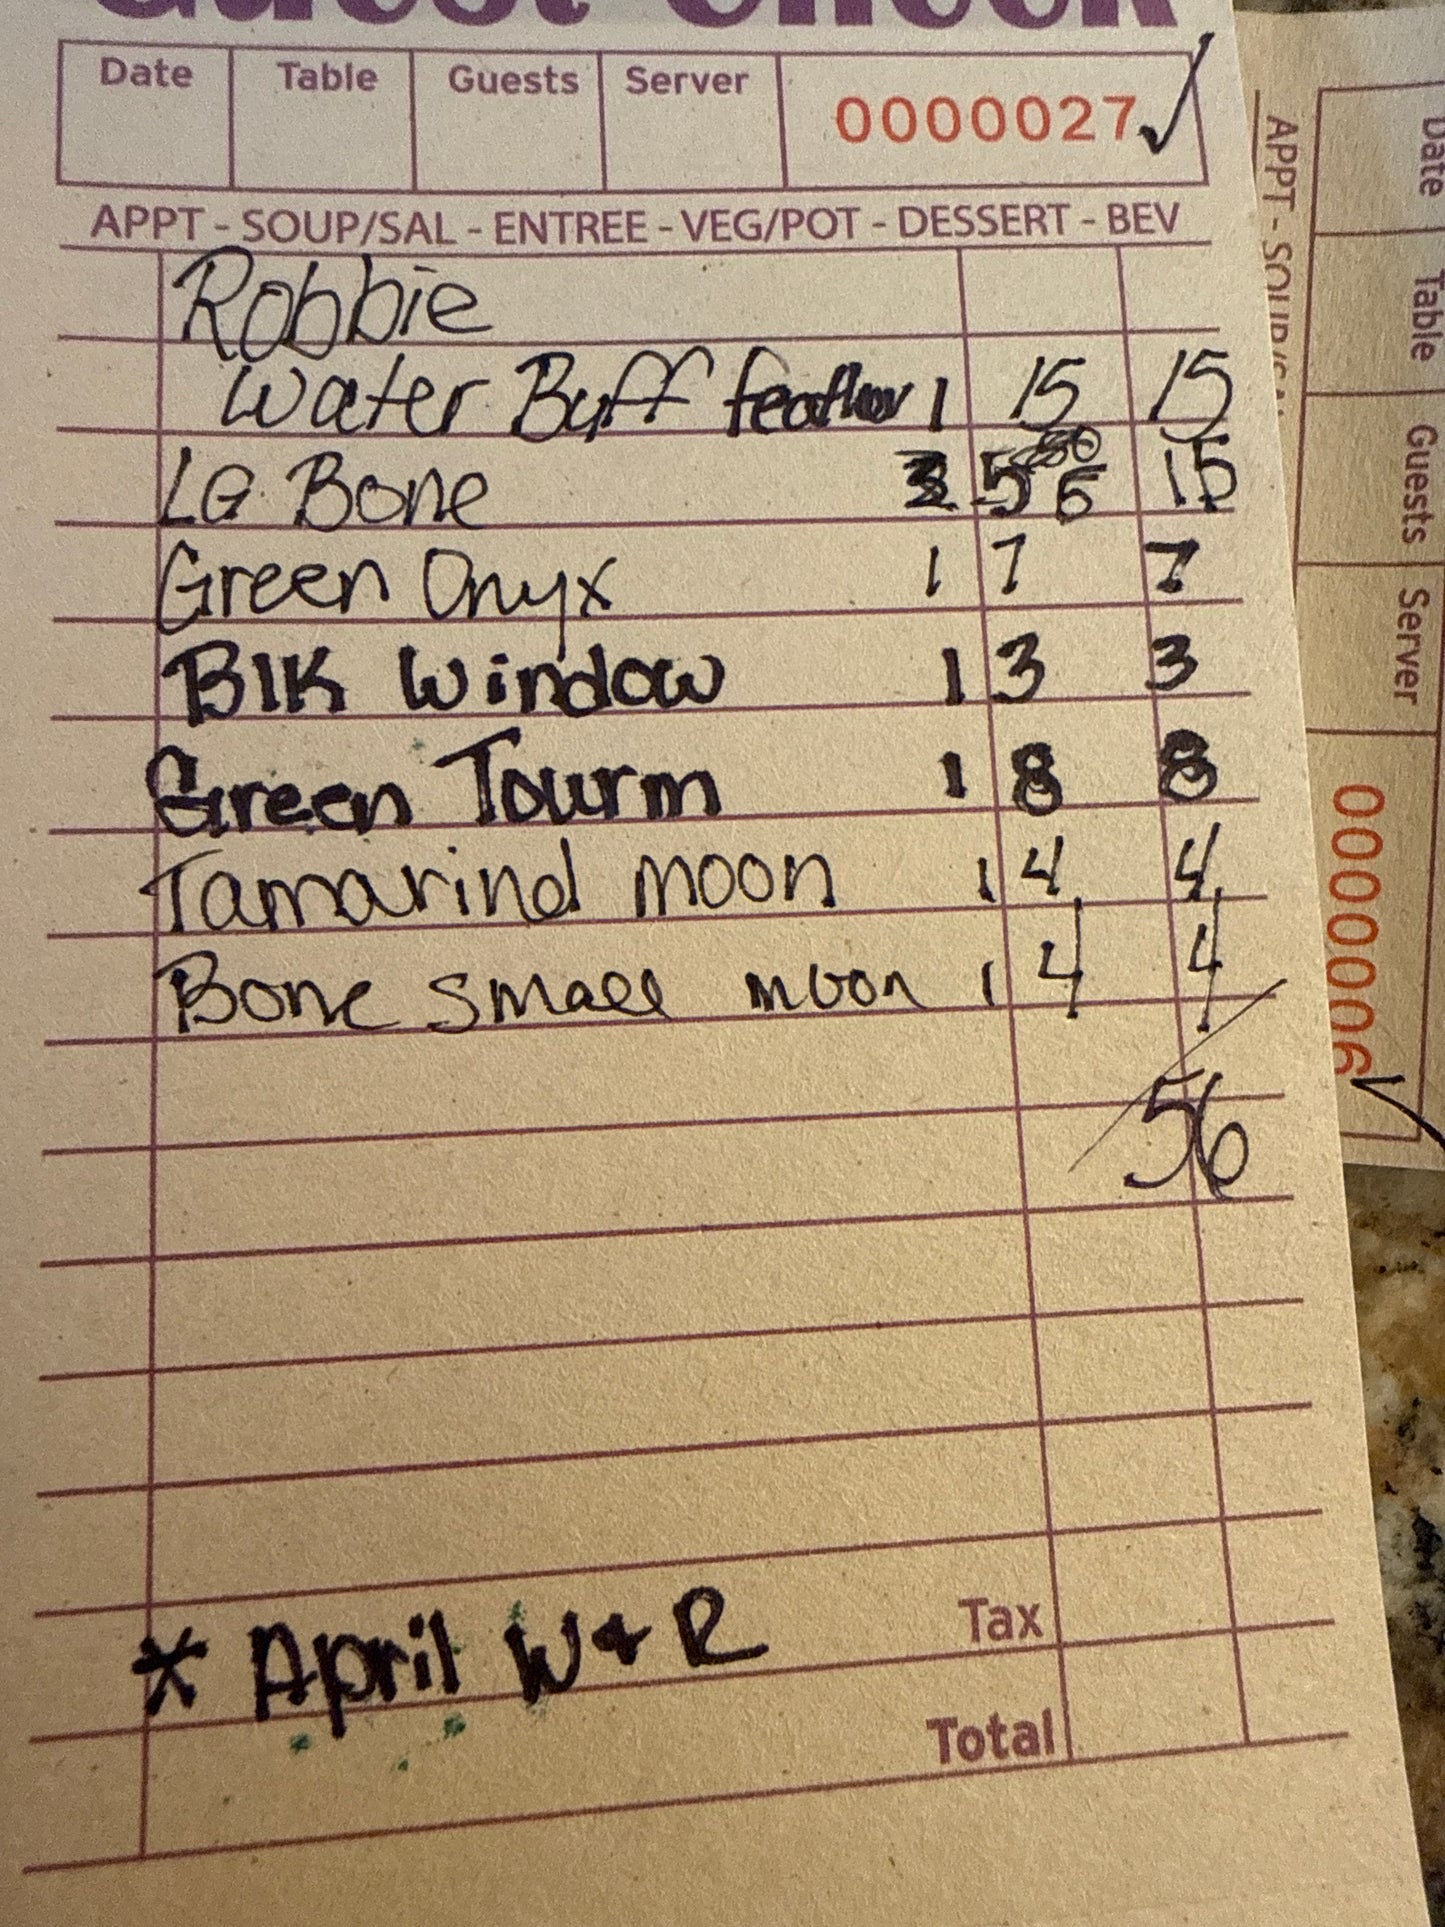 Guest Check
Date Table Guests Server 0000027
APPT - SOUP/SAL - ENTREE - VEG/POT - DESSERT - BEV
Robbie
Water Buff feather 1 15 15
LG Bone 3 5 15
Green Onyx 1 7 7
Blk Window 1 3 3
Green Tourm 1 8 8
Tamarind moon 1 4 4
Bone small moon 1 4 4
56
Tax
* April W + R
Total
Date Table Guests Server 0000006
APPT - SOUP/SAL